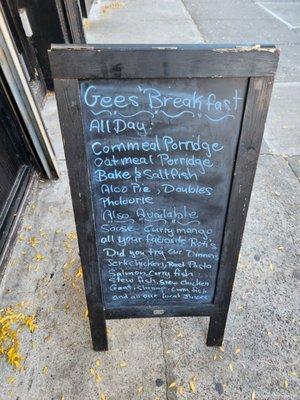 Gees' Breakfast
All Day:
Cornmeal Porridge
Oatmeal Porridge
Bake & Saltfish
Also Pie, Doubles
Pholourie
Also Available
Soose Curry mango
all your favorite Roti's
Did you Try our Dinner
Jerk chicken, Roti
Salmon, curry fish
Stew fish, Stew chicken
Goat, Shrimp, fish
and all our local